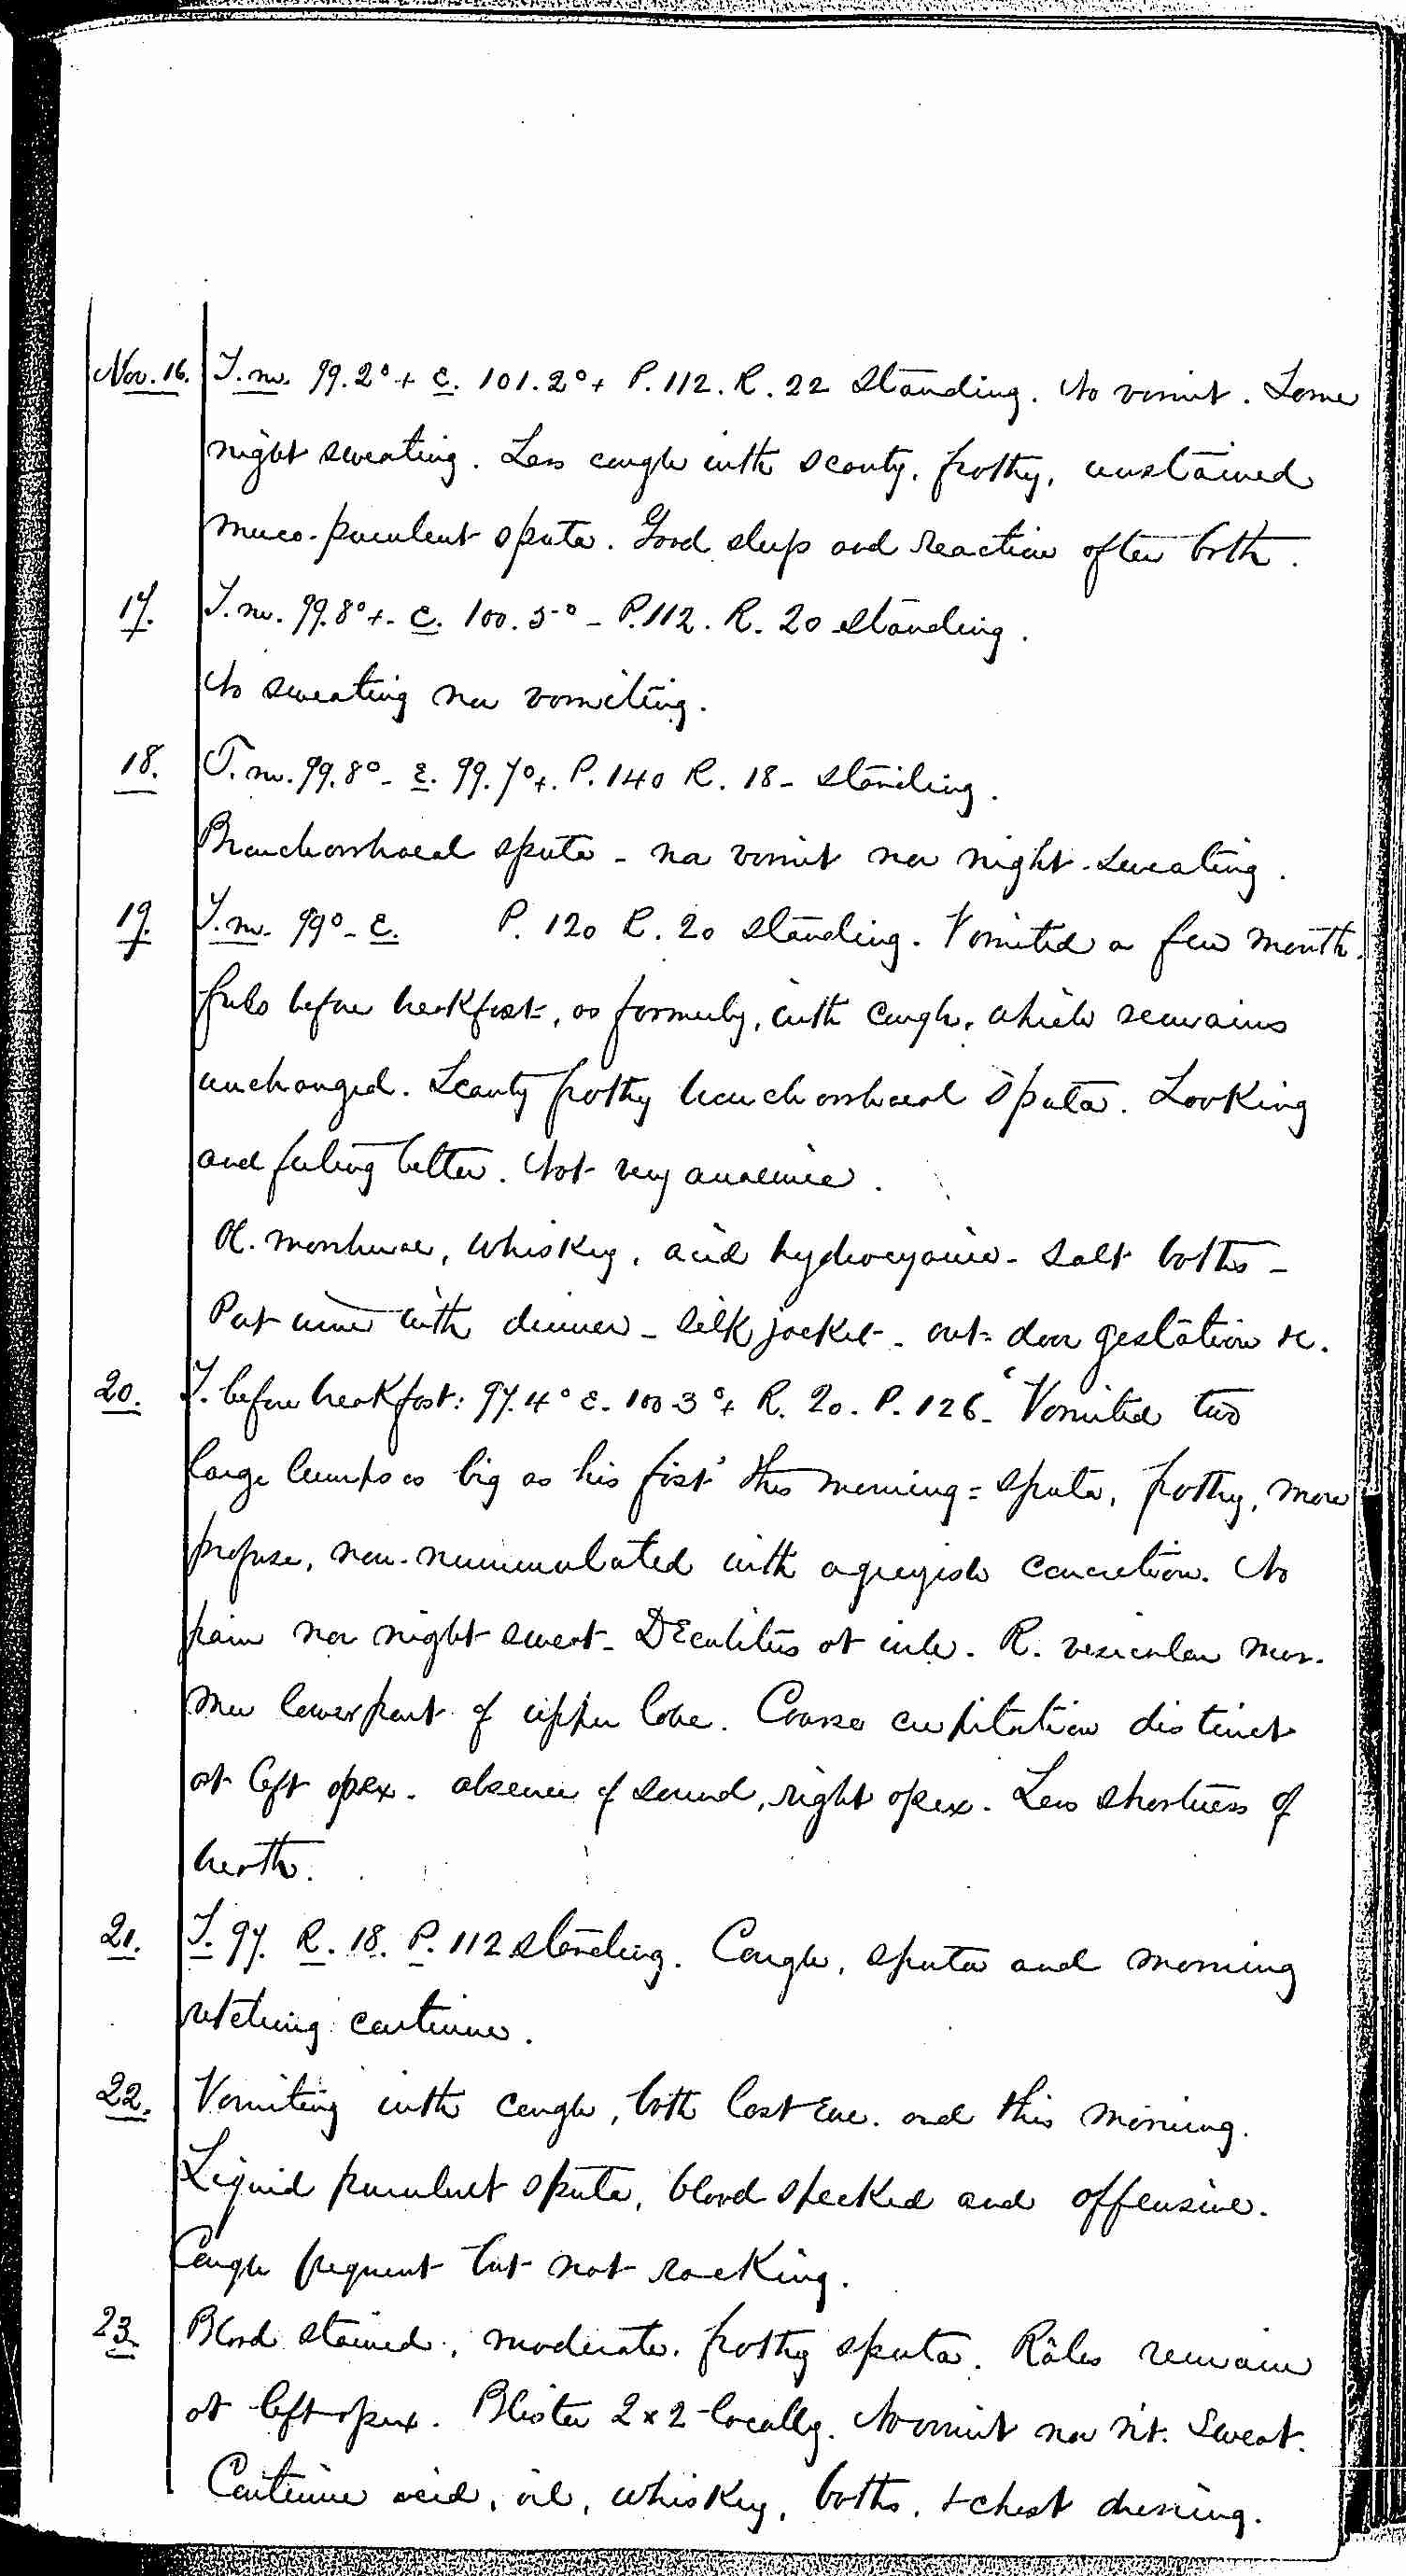 Nov. 16. T.m. 99.2°+ E. 101.2°+ P. 112. R. 22 standing. No vomit. Some
night sweating. Less cough with scanty, frothy, unstained
muco-purulent sputa. Good sleep and reaction after bath.
17. T.m. 99.8°+. E. 100.5°- P. 112. R. 20 standing.
No sweating nor vomiting.
18. T.m. 99.8°- E. 99.7°+. P. 140 R. 18- standing.
Bronchorrhoeal sputa - no vomit nor night-sweating.
19. T.m. 99°- E. P. 120 R. 20 standing. Vomited a few mouth-
fuls before breakfast, as formerly, with cough, which remains
unchanged. Scanty frothy bronchorrhoeal sputa. Looking
and feeling better. Not very anaemic.
Ol. morrhuae, whiskey, acid hydrocyanic - salt baths -
Port wine with dinner - silk jacket - out-door gestation &c.
20. T. before breakfast: 97.4° E. 100.3°+ R. 20. P. 126- "Vomited two
large lumps as big as his fist" this morning = sputa, frothy, more
profuse, non-nummulated with a greyish concretion. No
pain nor night sweat. Decubitus at will. R. vesicular mur-
mur lower part of upper lobe. Coarse crepitation distinct
at left apex. absence of sound, right apex. Less shortness of
breath.
21. T. 97. R. 18. P. 112 standing. Cough, sputa and morning
retching continue.
22. Vomiting with cough, both last Eve. and this morning.
Liquid purulent sputa, blood specked and offensive.
Cough frequent but not racking.
23. Blood stained, moderate, frothy sputa. Râles remain
at left apex. Blister 2 x 2 locally. No vomit nor n't. sweat.
Continue acid, oil, whiskey, baths, & chest dressing.